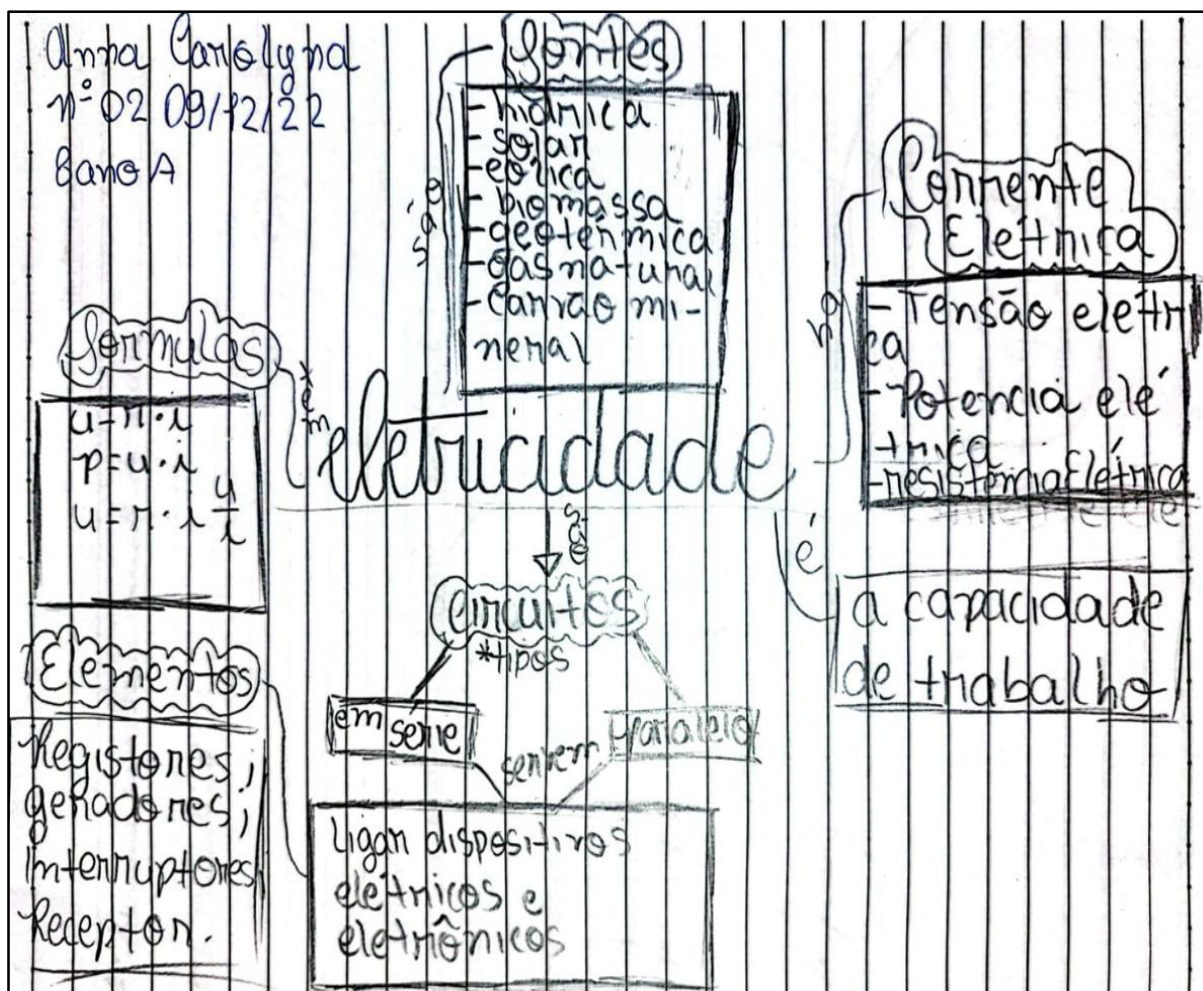 Anna Carolyna
nº 02 09/12/22
8ano A
Fontes
são
- hídrica
- solar
- eólica
- biomassa
- geotérmica
- Gás natural
- Carvão mi-
neral
Corrente
Elétrica
na
- Tensão elétri
ca
- Potencia elé
trica
- resistência Elétrica
formulas
*em
u=r.i
p=u.i
u=r.i u/i
eletricidade
são
é
a capacidade
de trabalho
Circuitos
*tipos
em serie
paralelo
servem
Ligar dispositivos
elétricos e
eletrônicos
Elementos
Registores;
geradores;
interruptores
Receptor.